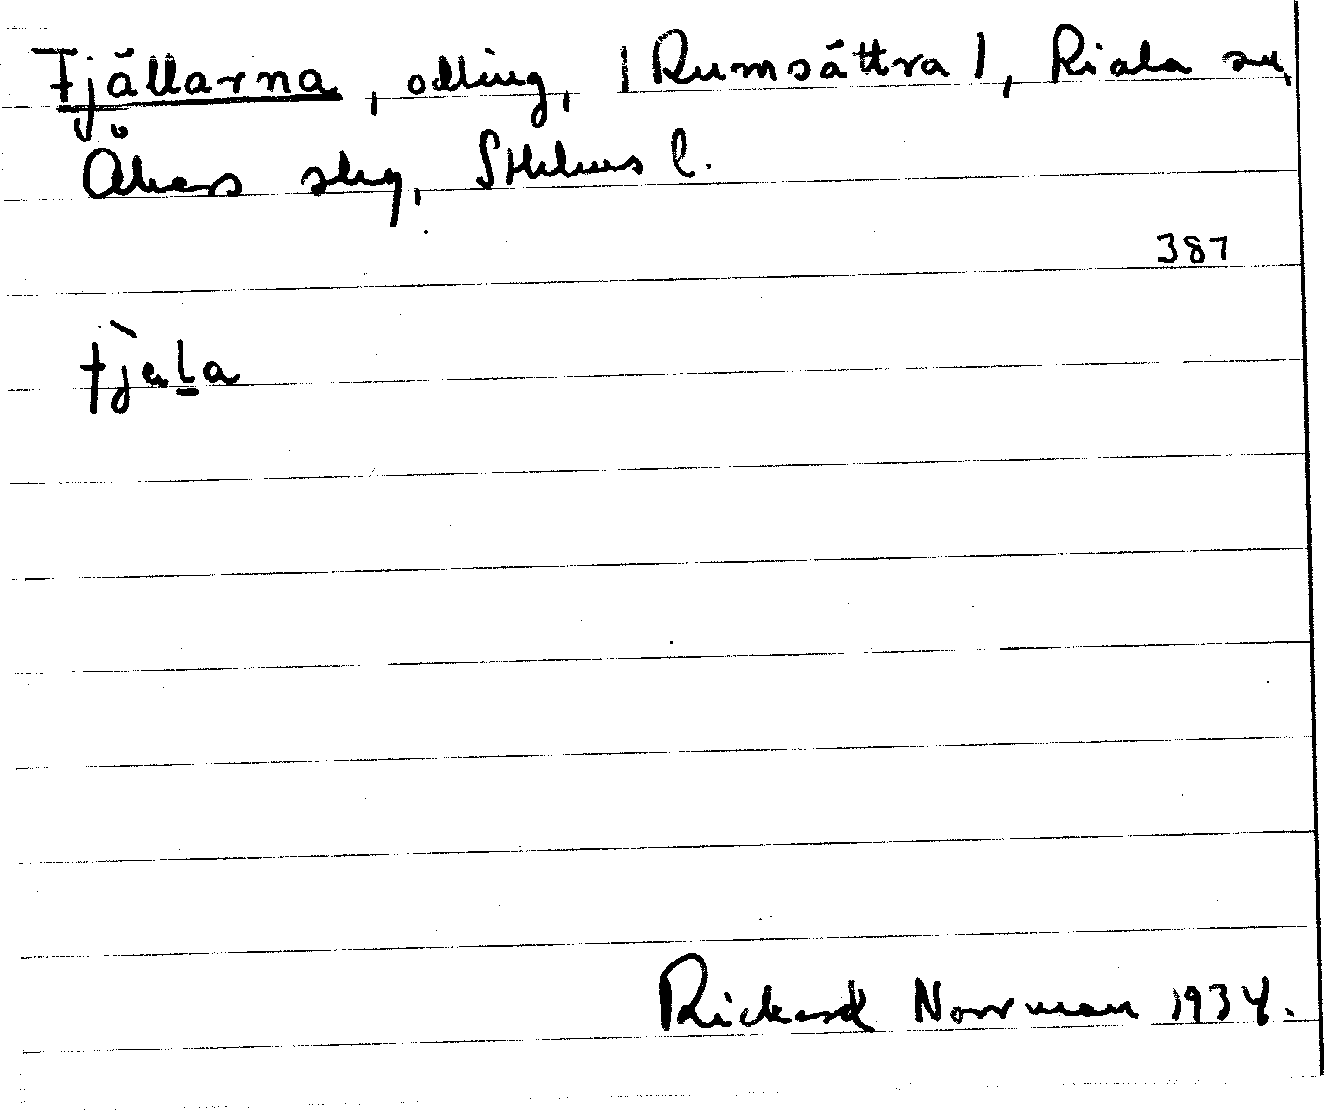 Fjällarna, odling, |Rumsättra|, Riala sn,
Åkers skg, Sthlms l.
387
fjela
Rickard Norrman 1934.